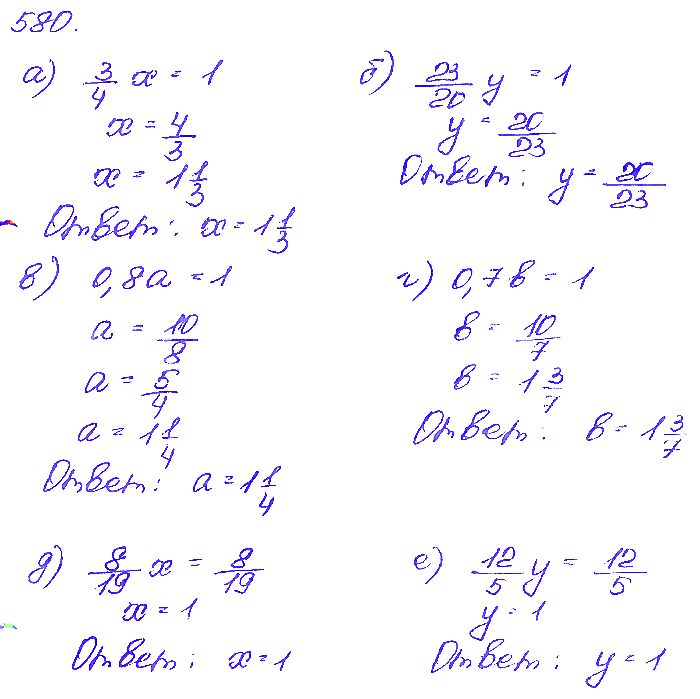 580.
а) 3/4 x = 1
x = 4/3
x = 1 1/3
Ответ: x = 1 1/3
б) 23/20 y = 1
y = 20/23
Ответ: y = 20/23
в) 0,8a = 1
a = 10/8
a = 5/4
a = 1 1/4
Ответ: a = 1 1/4
г) 0,7·в = 1
в = 10/7
в = 1 3/7
Ответ: в = 1 3/7
д) 8/19 x = 8/19
x = 1
Ответ: x = 1
е) 12/5 y = 12/5
y = 1
Ответ: y = 1